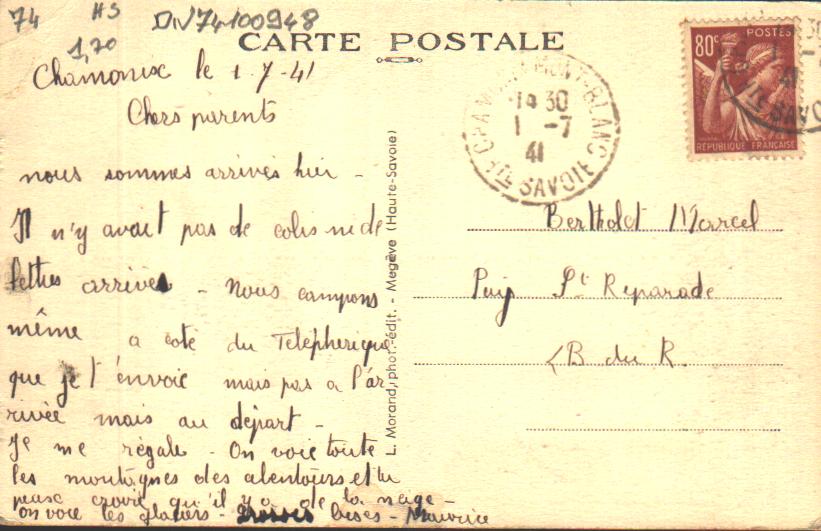 74 HS DIV74-100948
1,20
CARTE POSTALE
Chamonix le 1.7.41
Chers parents
nous sommes arrivés hier -
Il n'y avait pas de colis ni de
lettres arrivés - Nous campons
même a coté du Telepherique
que je t'envoie mais pas a l'ar
rivée mais au départ -
Je me régale - On voie toute
les montagnes des alentours et tu
peux croire qu'il y a de la neige -
on voie les glaciers - bises - Maurice
L. Morand, phot.-édit. - Megève (Haute-Savoie)
CHAMONIX-MONT-BLANC
14 30
1 -7
41
HTE SAVOIE
80c POSTES
RÉPUBLIQUE FRANÇAISE
30
1 -
41
HTE SAVO
Bertholet Marcel
Puy St Reparade
B du R.